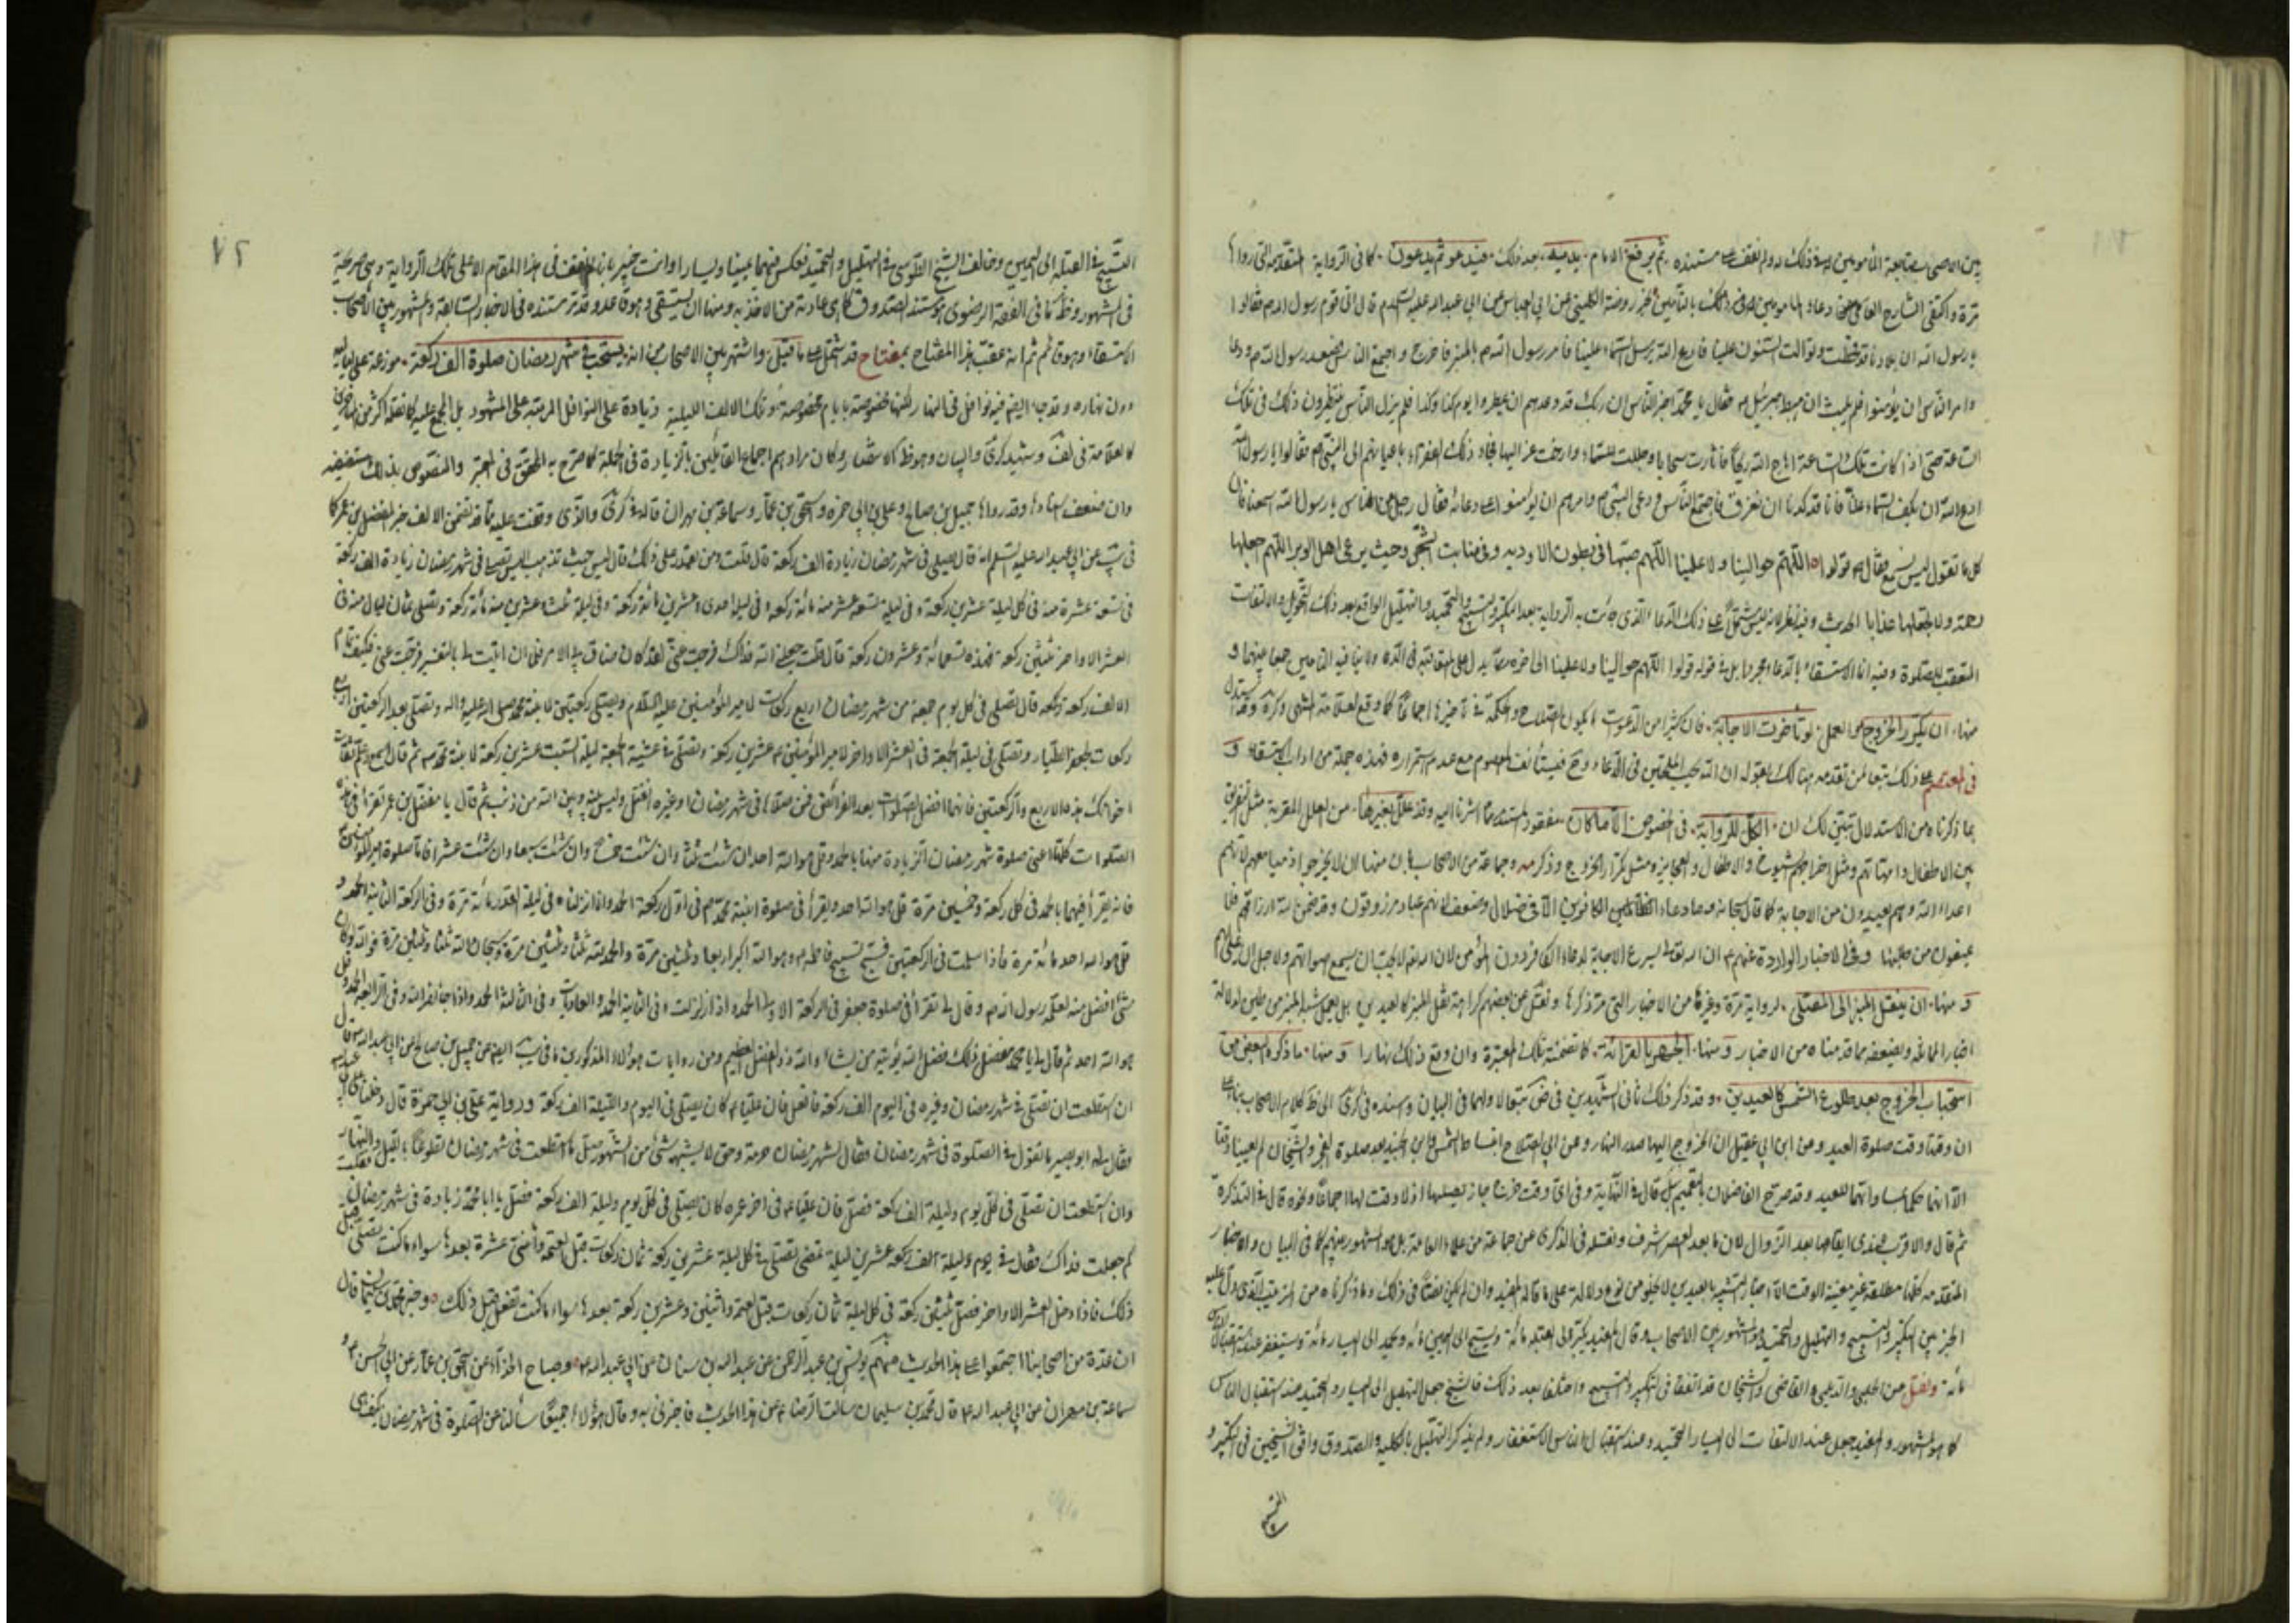 بين الاصحاب متابعة المأمومين له في ذلك ولم نقف على مستنده ثم يرفع الامام يديه بعد ذلك فيدعو ثم يدعون كما في الرواية المتقدمة التي رواها
مرة واكتفى الشارح دعاء المأمومين في ذلك بالتأمين لخبر روضة الكليني عن ابي العباس عن ابي عبد الله عليه السلام قال اتى قوم رسول الله ص فقالوا
يا رسول الله ان بلادنا قد قحطت وتوالت السنون علينا فادع الله يرسل السماء علينا فامر رسول الله ص بالمنبر فاخرج واجتمع الناس فصعد رسول الله ص ودعا
وامر الناس ان يؤمنوا فلم يلبث ان هبط جبرئيل فقال يا محمد اخبر الناس ان ربك قد وعدهم ان يمطروا يوم كذا وكذا فلم يزل الناس ينتظرون ذلك في تلك
الساعة حتى اذا كانت تلك الساعة اهاج الله ريحا فاثارت سحابا وجللت السماء وارخت عزاليها فجاء اولئك النفر باعيانهم الى النبي ص فقالوا يا رسول الله
ادع الله ان يكف السماء عنا فانا قد كدنا ان نغرق فاجتمع الناس ودعى النبي ص وامرهم ان يؤمنوا على دعائه فقال رجل من الناس يا رسول الله اسمعنا فان
كل ما تقول ليس نسمع فقال قولوا اللهم حوالينا ولا علينا اللهم صبها في بطون الاودية وفي منابت الشجر وحيث يرعى اهل الوبر اللهم اجعلها
رحمة ولا تجعلها عذابا الحديث وفيه نظر لانه ليس يشتمل على ذلك الدعاء الذي جائت به الرواية بعد التكبير والتسبيح والتحميد والتهليل الواقع بعد ذلك التحويل والالتفات
المتعقب للصلوة وفيه انما الاستسقاء بالدعاء مجردا بل في قوله قولوا اللهم حوالينا ولا علينا الى اخره
منها ان يكرر الخروج على العمل لو تأخرت الاجابة فان كثيرا من الدعوات يكون الصلاح والحكمة في تأخيرها اجماعا كما وقع لعلامة المنتهى وكرة وقد استدل
في المعتصم على ذلك تبعا لمن تقدمه هنالك بقوله ان الله يحب الملحين في الدعاء وفيستأنف الصوم مع عدم استمراره فهذه جملة من اداب الاستسقاء و
بما ذكرناه من الاستدلال تبين لك ان الكل للرواية في خصوص الاماكن مفقود المستند مما اشرنا اليه وقد علل بغيرها من العلل المقربة مثل التفريق
بين الاطفال وامهاتهم ومثل اخراج الشيوخ والاطفال والعجايز ومثل تكرار الخروج وذكر جماعة من الاصحاب ان منها ان لا يخرجوا ذميا معهم لانهم
اعداء الله وهم بعيدون من الاجابة كما قال سبحانه وما دعاء الكافرين الا في ضلال وضعف لانهم عباد مرزوقون وقد ضمن الله ارزاقهم فلا
يمنعون من طلبها وفي الاخبار الواردة عنهم ان الله يسرع الاجابة لدعاء الكافر دون المؤمن لان الله تعالى يحب ان يسمع اصواتهم
ومنها ان ينقل المنبر الى المصلى لرواية مرة وغيرها من الاخبار التي مر ذكرها ونقل عن بعضهم كراهة نقل المنبر كالعيدين بل يعمل شبه المنبر من طين لدلالة
اخبار المانعة ويضعفه ما قدمناه من الاخبار ومنها الجهر بالقرائة كما تضمنته تلك المعتبرة وان وقع ذلك نهارا ومنها ما ذكره البعض من
استحباب الخروج بعد طلوع الشمس كالعيدين وقد ذكر ذلك ثاني الشهيدين في ض تبعا لاولهما في البيان وسنده في كرى الى ظ كلام الاصحاب بناء على
ان وقتها وقت صلوة العيد وعن ابن ابي عقيل ان الخروج اليها صدر النهار وعن ابي الصلاح انبساط الشمس وابن الجنيد بعد صلوة الفجر والشيخان لم يعينا وقتا
الا انهما حكما بمساواتهما للعيد وقد صرح الفاضلان بالتعميم بل قال في النهاية وفي اي وقت خرج جاز يصليها اذ لا وقت لها اجماعا ونحوه قال في التذكرة
ثم قال والاقرب عندي ايقاعها بعد الزوال لان ما بعد العصر اشرف ونقله في الذكرى عن جماعة من علماء العامة بل هو المشهور بينهم كما في البيان والاخبار
المتقدمة كلها مطلقة غير معينة الوقت الا اخبار التشبيه بالعيدين لا يخلو من نوع دلالة على ما قاله المفيد وان لم يكن نصا في ذلك وما ذكرناه من الترتيب الذي دل عليه
الخبر بين التكبير والتسبيح والتهليل والتحميد هو المشهور بين الاصحاب وقال المفيد يكبر الى القبلة مائة ويسبح الى اليمين مائة ويحمد الى اليسار مائة ويستغفر عند استقبال الناس
مائة ونقل عن الحلبي والديلمي والقاضي والشيخان قد اتفقا في التكبير والتسبيح واختلفا بعد ذلك فالشيخ جعل التهليل الى اليسار والتحميد عند استقبال الناس
كما هو المشهور والمفيد جعل عند الالتفات الى اليسار التحميد وعند استقبال الناس الاستغفار ولم يذكر التهليل بالكلية والصدوق وافق الشيخين في التكبير و
التسبيح
٧٢
التسبيح في القبلة الى اليمين وخالف الشيخ الطوسي في التهليل والتحميد فعكس فيهما يمينا ويسارا وانت خبير بان لم نقف في هذا المقام الا على تلك الرواية وهي صريحة
في المشهور وظ ما في الفقه الرضوي هو مستند الصدوق كما هي عادته من الاخذ به ومنها ان يستسقى وهو قاعد وقد مر مستنده في الاخبار السابقة والمشهور بين الاصحاب
الاستسقاء وهو قائم ثم انه عقب هذا المفتاح بمفتاح قد اشتمل على ما قيل واشتهر بين الاصحاب من انه يستحب في شهر رمضان صلوة الف ركعة موزعة على لياليه
دون نهاره وتوجد ايضا فيه نوافل في النهار لكنها مخصوصة بايام مخصوصة وتلك الالف الليلية زيادة على النوافل المرتبة على المشهور بل المجمع عليه كما نقله اكثر المتأخرين
كالعلامة في لف وشهيد كرى والبيان وهو ظ الانتصار وكان مرادهم اجماع القائلين بالزيادة في الجملة كما صرح به المحقق في المعتبر والنصوص بذلك مستفيضة
وان ضعف اسنادا وقد رواها جميل بن صالح وعلي بن ابي حمزة واسحق بن عمار وسماعة بن مهران قاله في كرى والذي وقفت عليه مما قد تضمن الالف خبر المفضل بن عمر كما
في يب عن ابي عبد الله عليه السلام انه قال يصلي في شهر رمضان زيادة الف ركعة قال قلت ومن يقدر على ذلك قال ليس حيث تذهب اليس تصلي في شهر رمضان زيادة الف ركعة
في تسعة عشرة منه في كل ليلة عشرين ركعة وفي ليلة تسعة عشر منه مائة ركعة وفي ليلة احدى وعشرين مائة ركعة وفي ليلة ثلث وعشرين منه مائة ركعة وتصلي ثمان ليال منه في
العشر الاواخر ثلثين ركعة فهذه تسعمائة وعشرون ركعة قال قلت جعلني الله فداك فرجت عني لقد كان ضاق بي الامر فلما ان اتيت لي بالتفسير فرجت عني فكيف تمام
الالف ركعة قال تصلي في كل يوم جمعة من شهر رمضان اربع ركعات لامير المؤمنين عليه السلام وتصلي ركعتين لابنة محمد صلى الله عليه واله وتصلي بعد الركعتين اربع
ركعات لجعفر الطيار وتصلي في ليلة الجمعة في العشر الاواخر لامير المؤمنين ع عشرين ركعة وتصلي في عشية الجمعة ليلة السبت عشرين ركعة لابنة محمد ص ثم قال اسمع وعه وعلم ثقات
اخوانك هذه الاربع والركعتين فانهما افضل الصلوات بعد الفرائض فمن صلاها في شهر رمضان او غيره انفتل وليس بينه وبين الله من ذنب ثم قال يا مفضل بن عمر تقرأ في هذه
الصلوات كلها اعني صلوة شهر رمضان الزيادة منها بالحمد وقل هو الله احد ان شئت مرة وان شئت ثلثا وان شئت خمسا وان شئت سبعا وان شئت عشرا فاما صلوة امير المؤمنين ع
فانه يقرأ فيها بالحمد في كل ركعة وخمسين مرة قل هو الله احد ويقرأ في صلوة ابنة محمد ص في اول ركعة الحمد وانا انزلناه في ليلة القدر مائة مرة وفي الركعة الثانية الحمد و
قل هو الله احد مائة مرة فاذا سلمت في الركعتين فسبح تسبيح فاطمة ع وهو الله اكبر اربعا وثلثين مرة والحمد لله ثلثا وثلثين مرة وسبحان الله ثلثا وثلثين مرة فوالله لو كان
شئ افضل منه لعلمه رسول الله ص وقال لي تقرأ في صلوة جعفر في الركعة الاولى الحمد واذا زلزلت وفي الثانية الحمد والعاديات وفي الثالثة الحمد واذا جاء نصر الله وفي الرابعة الحمد وقل
هو الله احد ثم قال لي يا مفضل ذلك فضل الله يؤتيه من يشاء والله ذو الفضل العظيم ومن روايات هؤلاء المذكورين ما في يب ايضا عن جميل بن صالح عن ابي عبد الله ع قال
ان استطعت ان تصلي في شهر رمضان وغيره في اليوم الف ركعة فافعل فان عليا ع كان يصلي في اليوم والليلة الف ركعة ورواية علي بن ابي حمزة قال دخلنا على ابي عبد الله
فقال له ابو بصير ما تقول في الصلوة في شهر رمضان فقال لشهر رمضان حرمة وحق لا يشبهه شئ من الشهور صل ما استطعت في شهر رمضان تطوعا بالليل والنهار
وان استطعت ان تصلي في كل يوم وليلة الف ركعة فصل فان عليا ع في اخر عمره كان يصلي في كل يوم وليلة الف ركعة فصل يا ابا محمد زيادة في شهر رمضان فقلت
كم جعلت فداك فقال في عشرين ليلة تمضي تصلي في كل ليلة عشرين ركعة ثمان ركعات قبل العتمة واثنتي عشرة بعدها سواء ما كنت تصلي قبل
ذلك فاذا دخل العشر الاواخر فصل ثلثين ركعة في كل ليلة ثمان ركعات قبل العتمة واثنتين وعشرين ركعة بعدها سواء ما كنت تفعل قبل ذلك وخبر محمد بن سليمان قال
ان عدة من اصحابنا اجتمعوا على هذا الحديث منهم يونس بن عبد الرحمن عن عبد الله بن سنان عن ابي عبد الله ع وصباح الحذاء عن اسحق بن عمار عن ابي الحسن ع و
سماعة بن مهران عن ابي عبد الله ع قال محمد بن سليمان سالت الرضا ع عن هذا الحديث فاخبرني به وقال هؤلاء جميعا سألنا عن الصلوة في شهر رمضان كيف هي